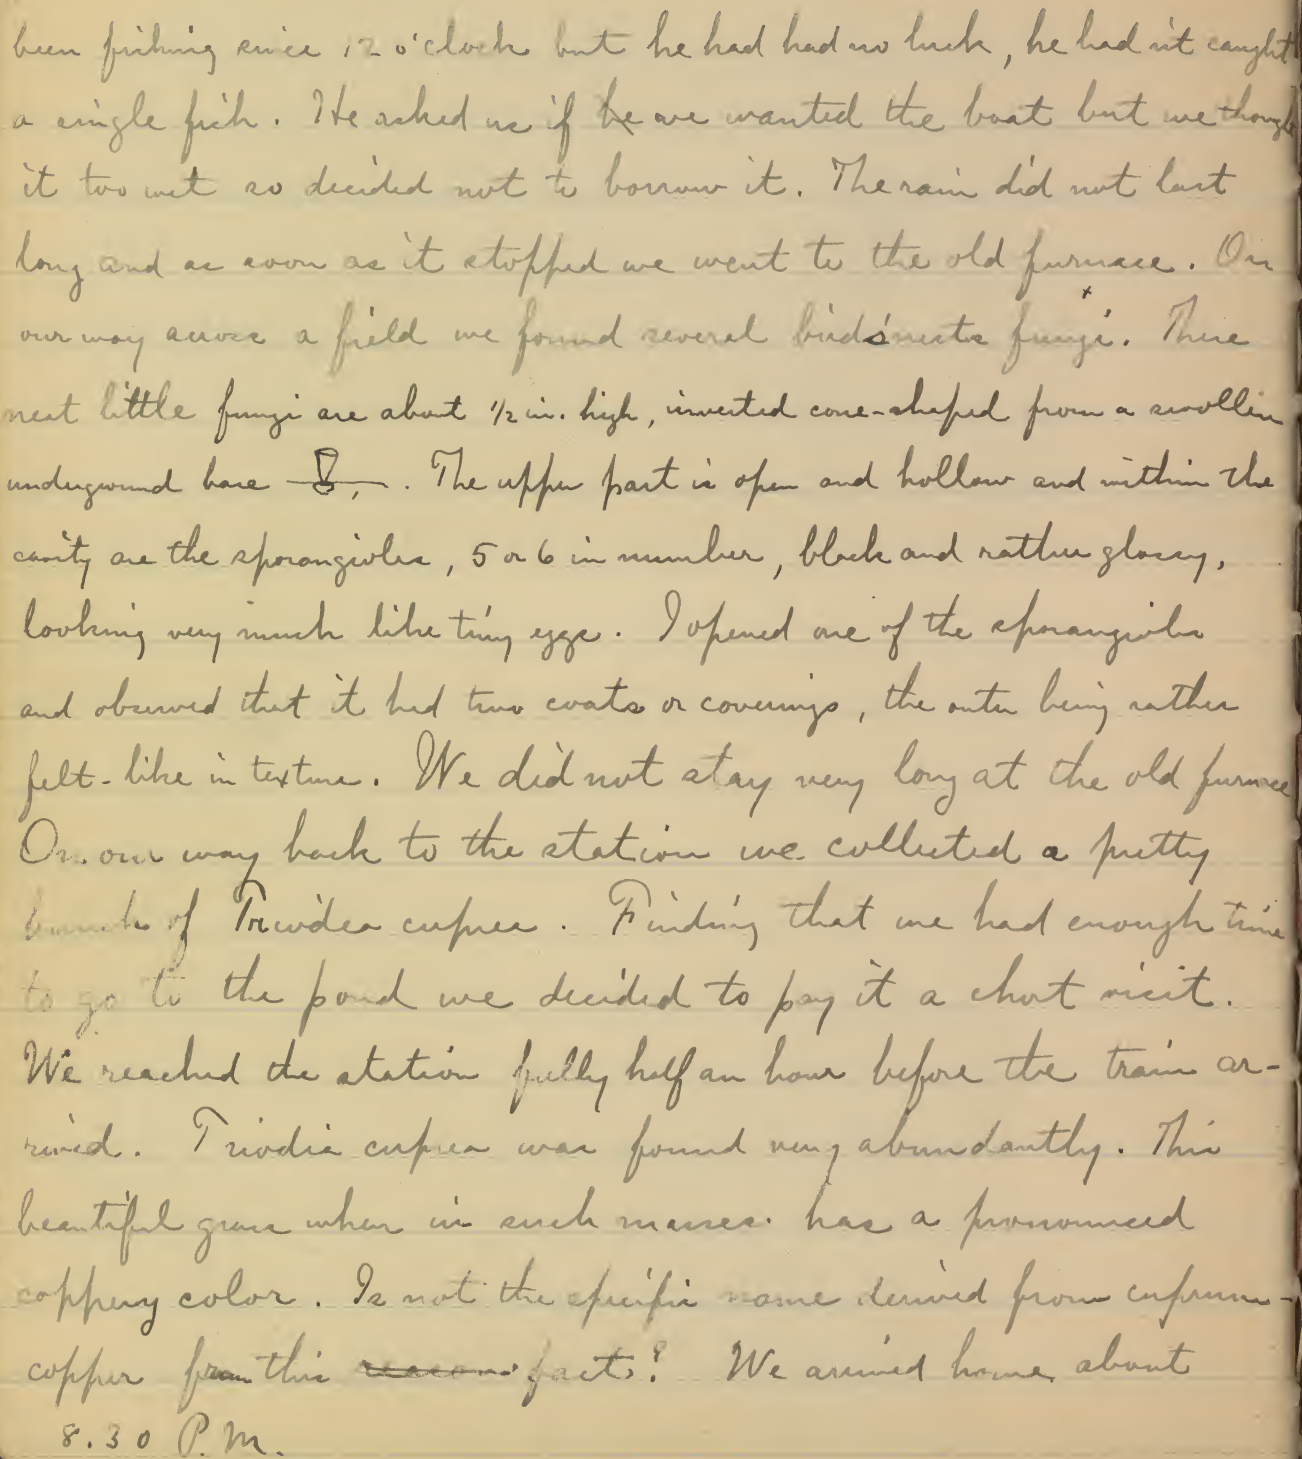 been fishing since 12 o'clock but he had had no luck, he had n't caught
a single fish. He asked us if he we wanted the boat but we though
it too wet so decided not to borrow it. The rain did not last
long and as soon as it stopped we went to the old furnace. On
our way across a field we found several bird's nests fungi. These
neat little fungi are about 1/2 in. high, inverted cone-shaped from a swollen
underground base . The upper part is open and hollow and within the
cavity are the sporangioles, 5 or 6 in number, black and rather glossy,
looking very much like tiny eggs. I opened one of the sporangioles
and observed that it had two coats or coverings, the outer being rather
felt-like in texture. We did not stay very long at the old furnace
On our way back to the station we collected a pretty
bunch of Triodia cuprea. Finding that we had enough time
to go to the pond we decided to pay it a short visit.
We reached the station fully half an hour before the train ar-
rived. Triodia cuprea was found very abundantly. This
beautiful grass when in such masses has a pronounced
coppery color. Is not the specific name derived from cuprum-
copper from this reason fact? We arrived home about
8.30 P.M.